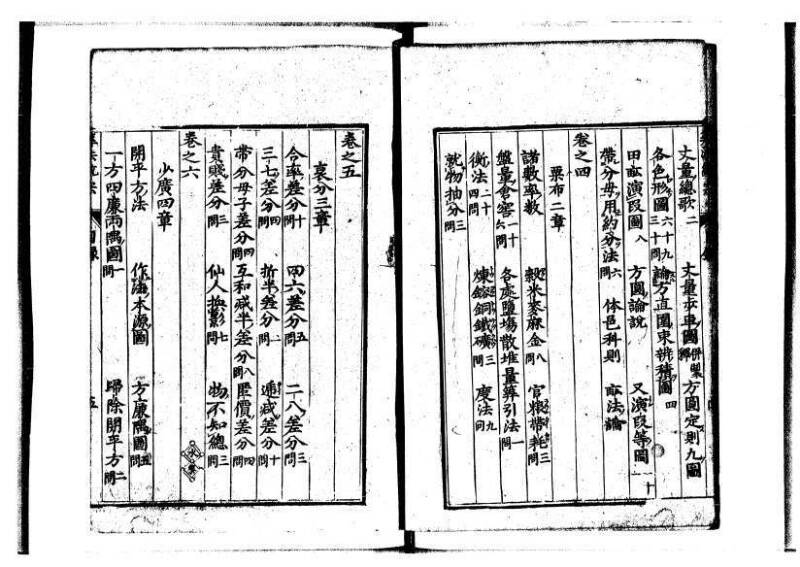 丈量總歌二 丈量步車圖 方圓定則九圖
各色形圖六十九 三十問 論方直圓束辨積圖四
田畝演段圖八 方圓論說 又演段等圖十
帶分母用約分法六問 体色科則 畝法論
卷之四
粟布二章
諸數率數 穀米麥麻金八問 官糧帶耗三問
盤量倉窖十一六問 各處鹽塲散堆量筭引法一問
衡法二十問 煉鎔銅鐵礦三問 度法九問
就物抽分三問
卷之五
衰分三章
合率差分十問 四六差分五問 二八差分三問
三七差分四問 折半差分二問 遞减差分十問
帶分母子差分四問 互和减半差分八問 匿價差分四問
貴賤差分三問 仙人換影七問 物不知總三問
卷之六
少廣四章
開平方法 作法本源圖 方廉隅圖五
一方四廉兩隅圖一問 歸除開平方二問
五